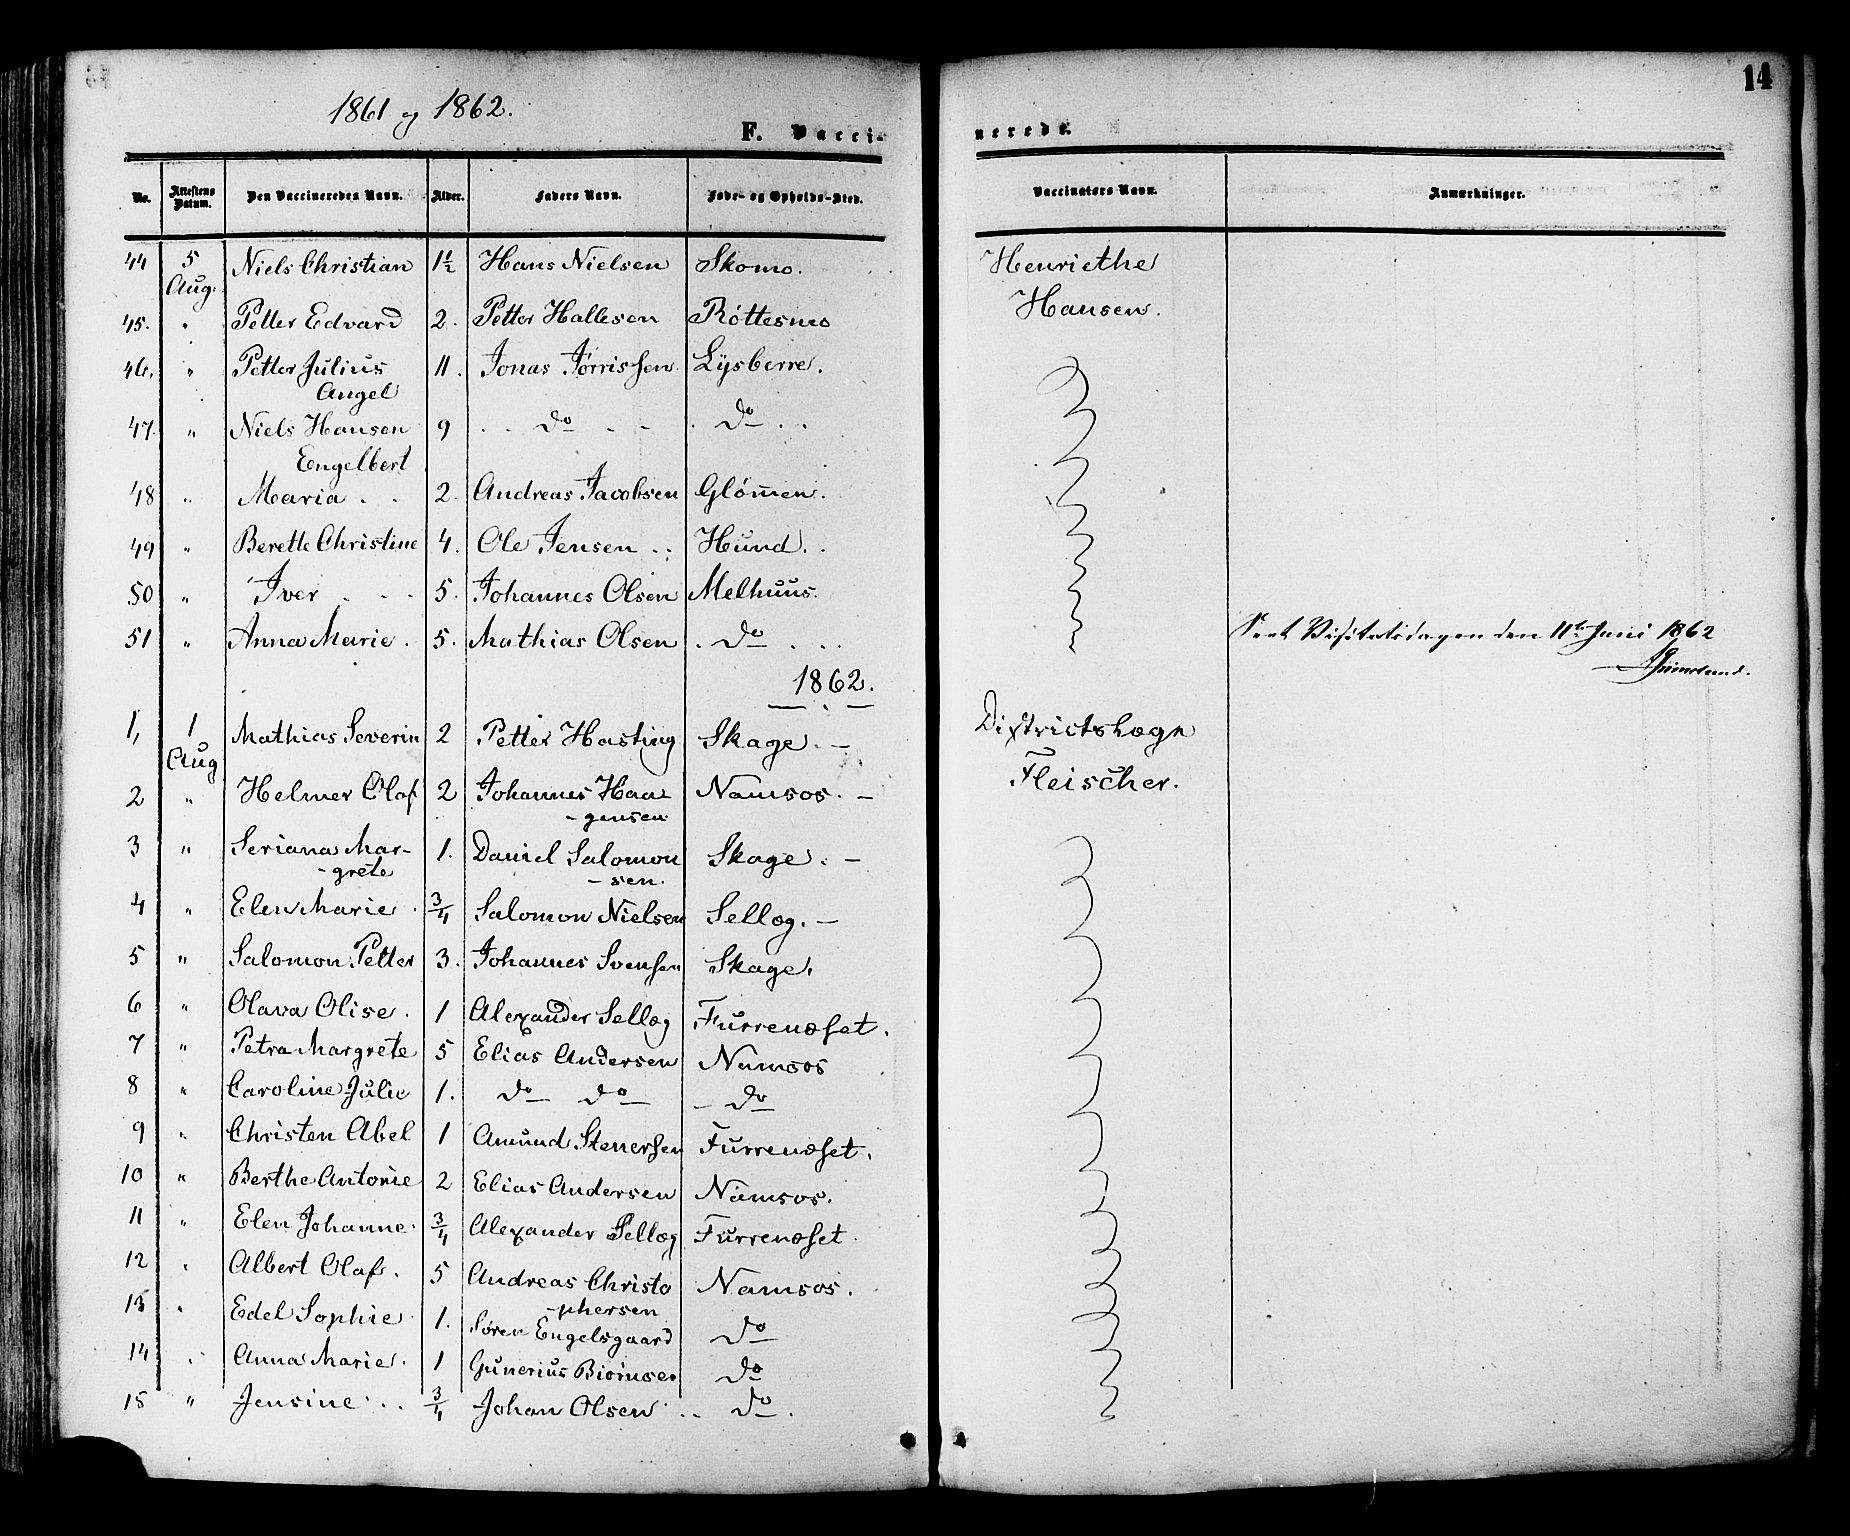 14
1861 og 1862.
F. Vacci-
nerede.
No. Attestens Datum. Den Vaccineredes Navn. Alder. Faders Navn. Føde- og Opholds-Sted. Vaccinators Navn. Anmærkninger.
44 5 Aug: Niels Christian 1½ Hans Nielsen Skomo. Henriethe Hansen.
45. " Petter Edvard 2. Petter Hallesen Róttesmo
46. " Petter Julius Angel 11. Jonas Jørrissen Lysberre.
47. " Niels Hansen Engelbert 9 do do
48 " Maria 2. Andreas Jacobsen Glómen.
49 " Berette Christine 4. Ole Jensen Hund.
50 " Iver 5. Johannes Olsen Melhuus.
51 " Anna Marie 5. Mathias Olsen do
Seet Visitatsdagen den 11te Juni 1862
1862.
1, 1 Aug Mathias Severin 2 Petter Hasting Skage. Districtslæge Fleischer.
2 " Helmer Olaf 2 Johannes Haa-gensen Namsos.
3 " Seriana Mar-grete 1. Daniel Salomon-sen. Skage.
4 " Elen Marie 3/4 Salomon Nielsen Sellæg.
5 " Salomon Petter 3. Johannes Svensen Skage.
6 " Olava Olise. 1 Alexander Sellæg Furrenæset.
7 " Petra Margrete 5 Elias Andersen Namsos
8 " Caroline Julie 1. do do do
9 " Christen Abel 1 Amund Stenersen Furrenæset.
10 " Berthe Antonie 2 Elias Andersen Namsos.
11 " Elen Johanne 3/4 Alexander Sellæg Furrenæset.
12 " Albert Olaf. 5 Andreas Christo-phersen Namsos.
13 " Edel Sophie 1. Søren Engelsgaard do
14 " Anna Marie. 1 Gunerius Biørnsen do
15 " Jensine 3/4 Johan Olsen do.